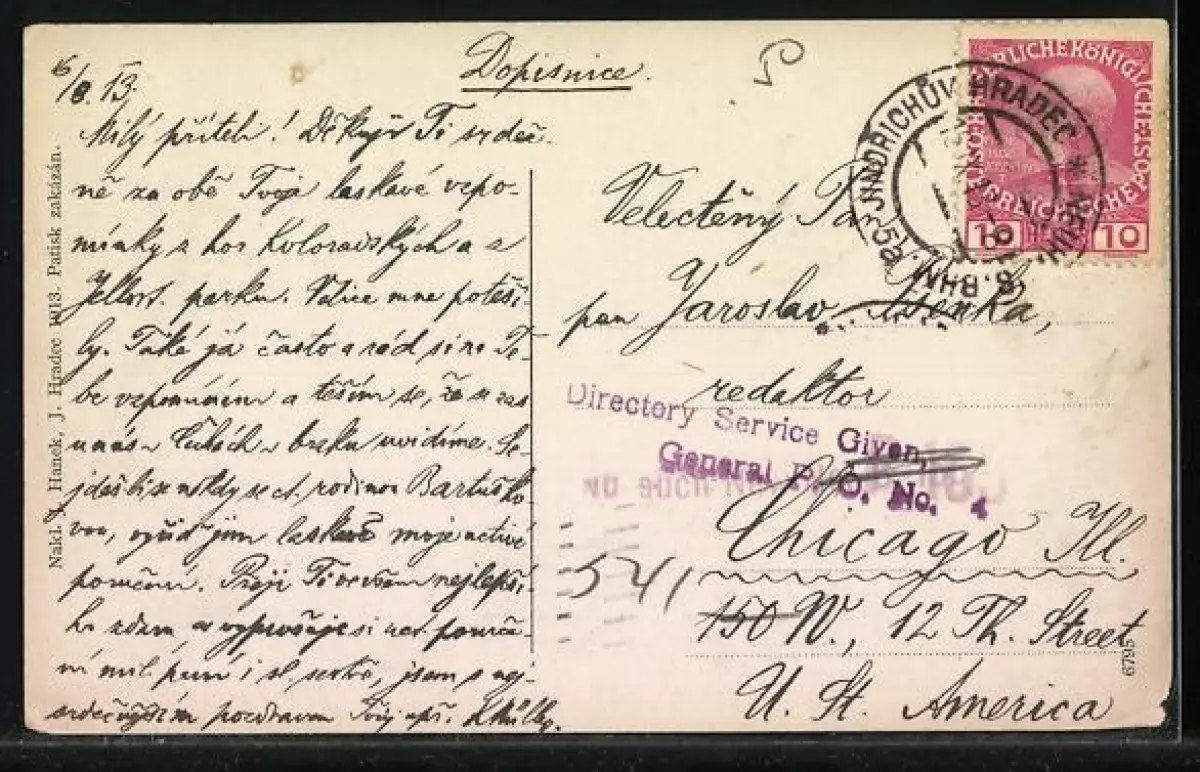 Dopisnice.
6/8. 13.
Milý příteli! Děkuji Ti srdeč-
ně za obě Tvoje laskavé vzpo-
mínky z hor Koloravských a z
parku. Velice mne potěši-
ly. Také já často a rád si na Te-
be vzpomínám a těším se, že se zas
u nás v Čechách brzku uvidíme. Se-
jdeš-li se někdy se ct. rodinou Bartuško-
vou, vyřiď jim laskavě moje uctivé
poručení. Přeji Ti ve všem nejlepší-
ho zdaru, a vyprošuje si uct. poruče-
ní mil. paní i sl. jsem s nej-
srdečnějším pozdravem Tvůj upř.
Nakl. J. Hanek, J. Hradec 1913. Patisk zakázán.
Velectěný Pan
pan Jaroslav
redaktor
Chicago Ill.
541
150 W., 12 Th. Street
U. St. America
6795
Directory Service Given,
General P. O. No. 4
NO SUCH
JINDŘICHŮV HRADEC * NEUH
10 10